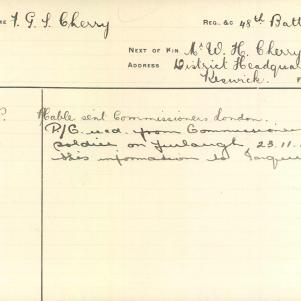 ME F. G. S. Cherry REG. &C 48th Batt
NEXT OF KIN Mr W. H. Cherry
ADDRESS District Headqua
Keswick.
Cable sent Commissioners London.
P/C recd. from Commissioner
soldier on furlough, 23.11.
this information to